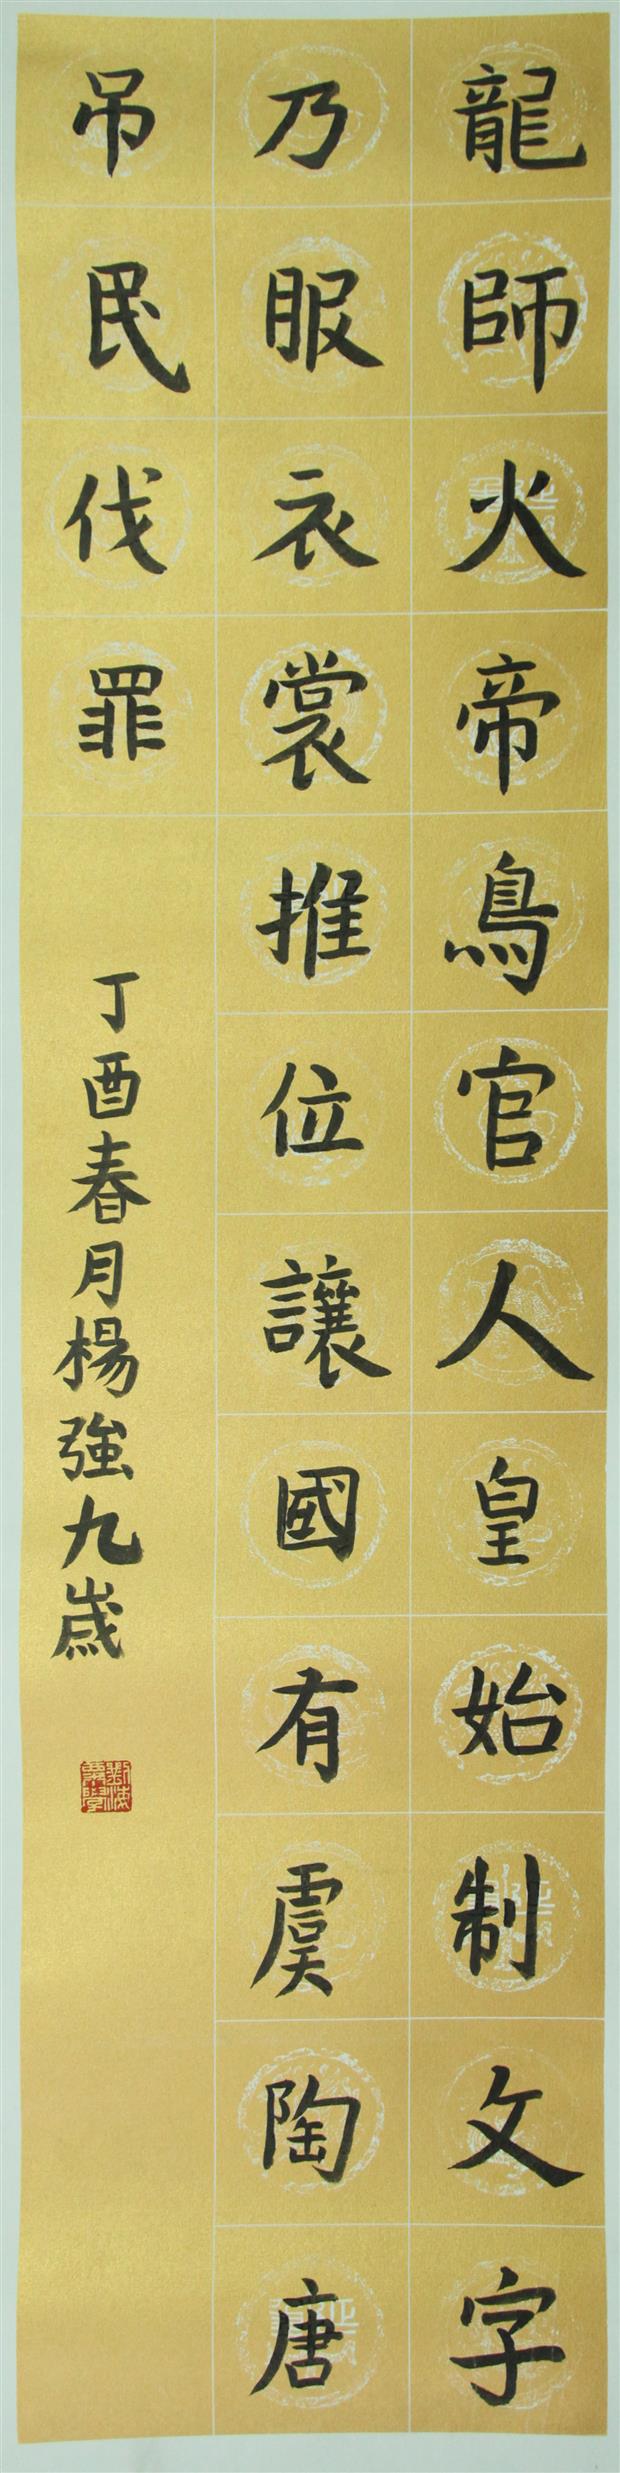 龍師火帝鳥官人皇始制文字
乃服衣裳推位讓國有虞陶唐
吊民伐罪
丁酉春月楊強九歲